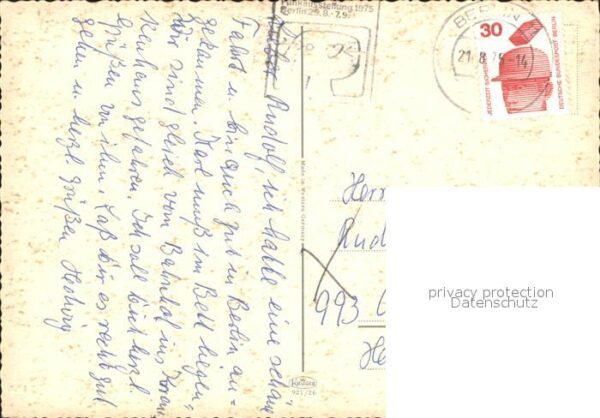 Funkausstellung 1975
Berlin 29.8.-7.9.
BERLIN
21.8.75-14
30
JEDERZEIT SICHERHEIT
DEUTSCHE BUNDESPOST BERLIN
Lieber Rudolf, ich hatte eine schöne
Fahrt u. bin auch gut in Berlin an-
gekommen. Karl muß im Bett liegen
Wir sind gleich vom Bahnhof ins Kran
kenhaus gefahren. Ich soll Dich herzl.
Grüßen von ihm. Laß Dir es recht gut
gehen u. herzl. Grüßen Hedwig
Made in Western Germany
Krüger
921/26
Herr
Rud
993
He
privacy protection
Datenschutz